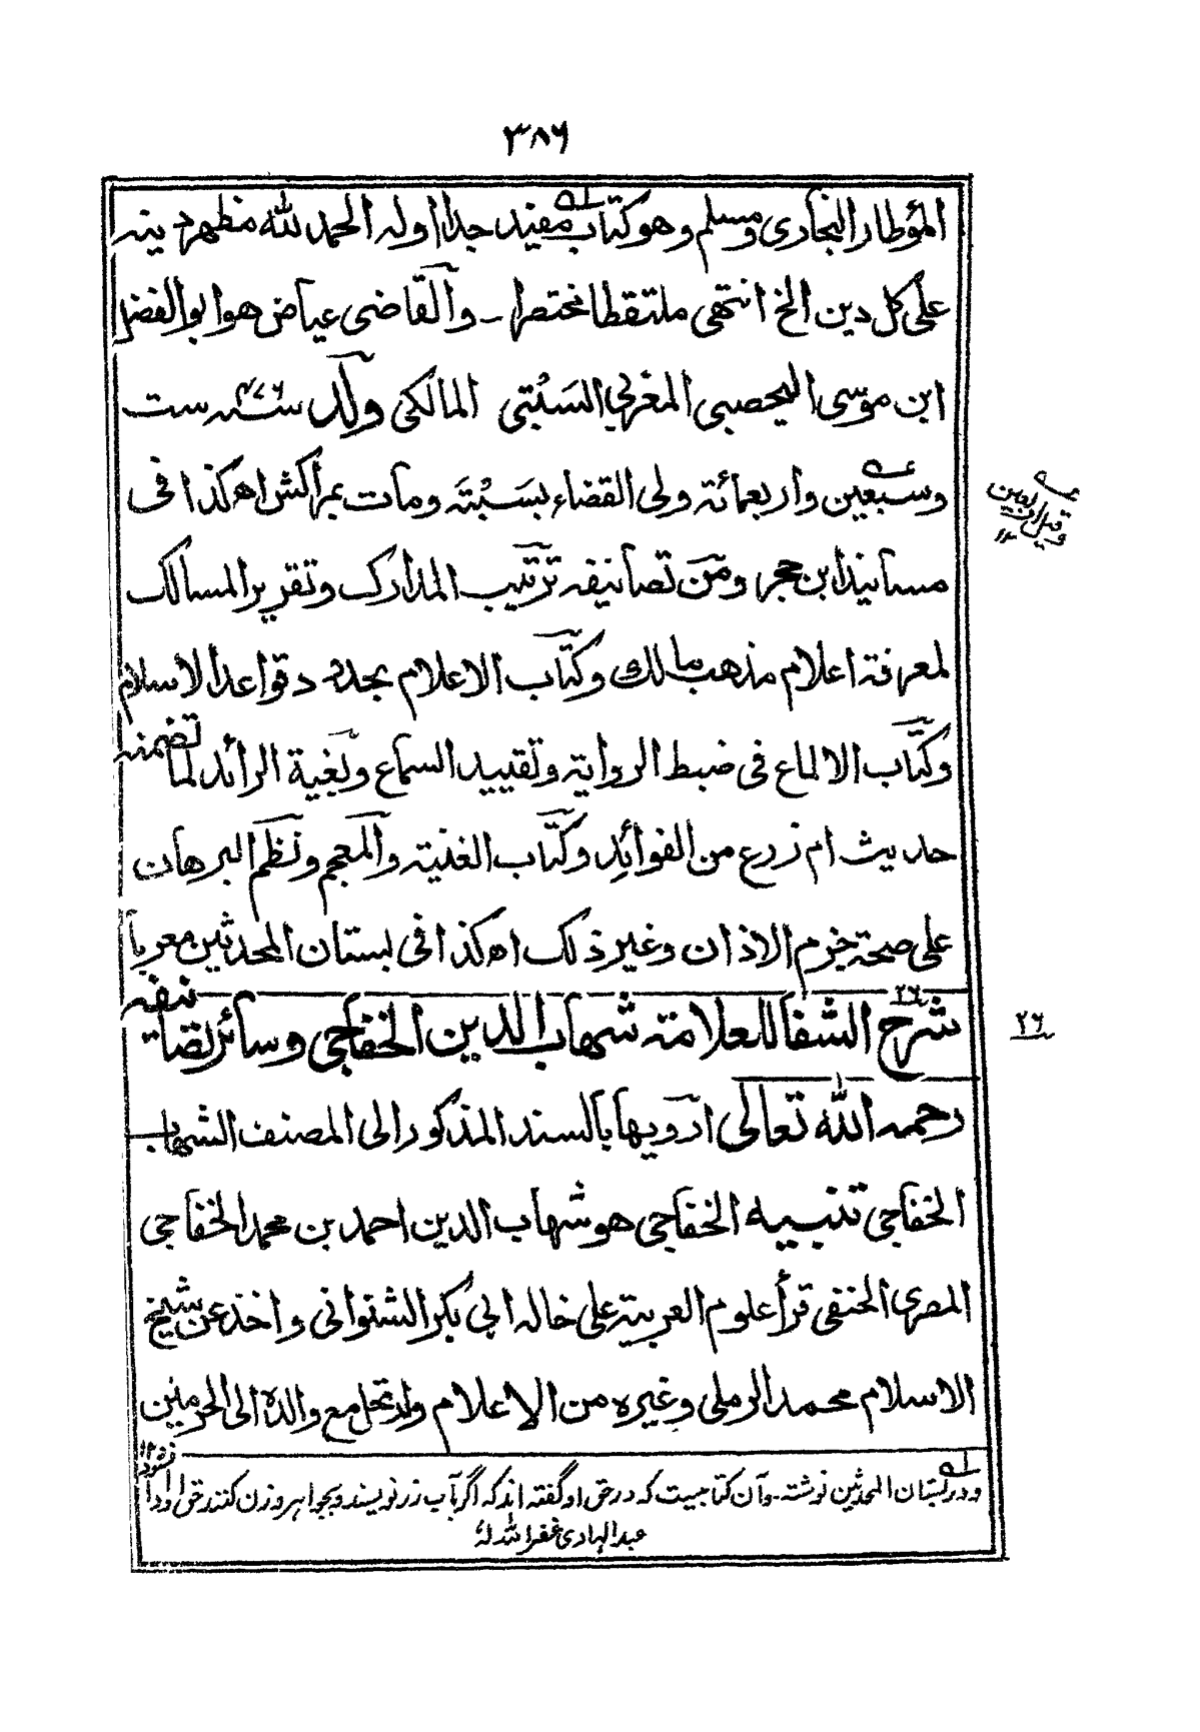 ٣٨٦
المؤطا والبخاری ومسلم وهو كتاب مفيد جدا اوله الحمد لله مظهر دينه
علی كل دين الخ انتهی ملتقطا مختصرا ــ والقاضی عياض هو ابو الفضل
ابن موسی اليحصبی المغربی السَبْتی المالكی ولد سنه ٤٧٦ ست
وسبعين واربعمائة ولی القضاء بسَبْتَه ومات بمراكش اه كذا فی
مسانيد ابن حجر ومن تصانيفه ترتيب المدارك وتقرير المسالك
لمعرفة اعلام مذهب مالك وكتاب الاعلام بحدود قواعد الاسلام
وكتاب الالماع فی ضبط الرواية وتقييد السماع وبغية الرائد لما تضمنه
حديث ام زرع من الفوائد وكتاب الغنية والمعجم ونظم البرهان
علی صحة جزم الاذان وغير ذلك اه كذا فی بستان المحدثين معرباً
شرح الشفا للعلامة شهاب الدين الخفاجی وسائر تصانيفه
٢٦
رحمه الله تعالی ارويها بالسند المذكور الی المصنف الشهاب
الخفاجی تنبيه الخفاجی هو شهاب الدين احمد بن محمد الخفاجی
المصری الحنفی قرأ علوم العربية علی خاله ابی بكر الشنوانی واخذ عن شيخ
الاسلام محمد الرملی وغيره من الاعلام وارتحل مع والده الی الحرمين
ودر بستان المحدثين نوشته ـ وآن كتابيست كه در حق او گفته اند كه اگر بآب زر نويسند و بجواهر وزن كنند حق او ادا نشود ١٢
عبدالهادی غفر الله له